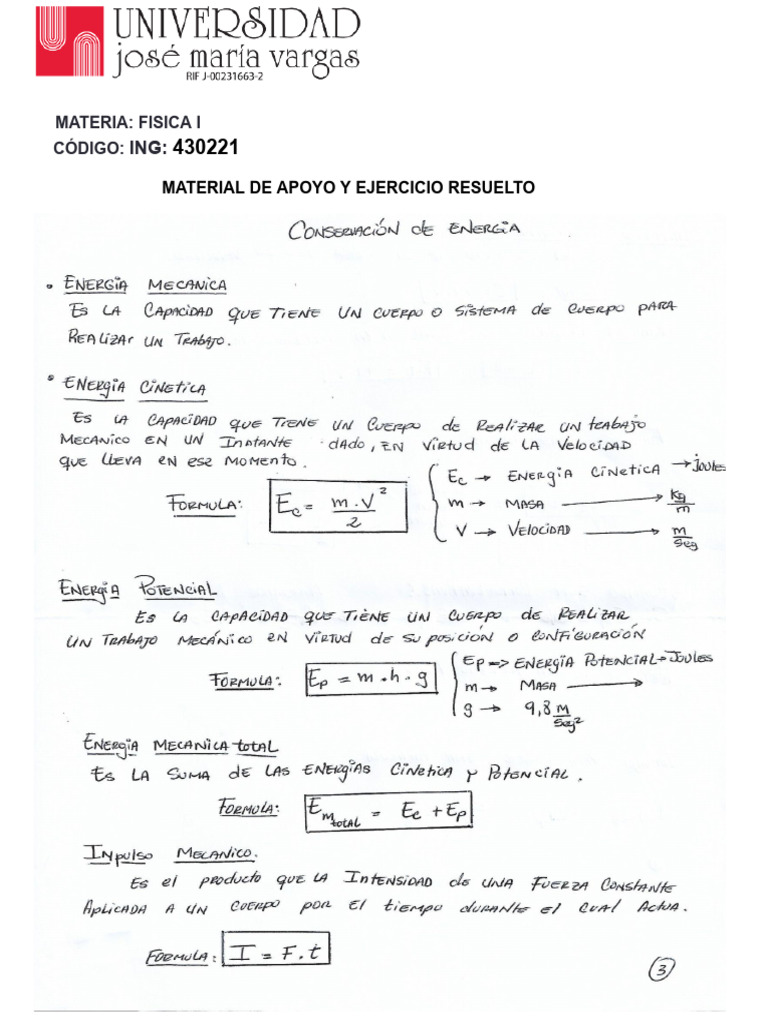 UNIVERSIDAD
josé maría vargas
RIF J-00231663-2
MATERIA: FISICA I
CÓDIGO: ING: 430221
MATERIAL DE APOYO Y EJERCICIO RESUELTO
CONSERVACIÓN DE ENERGÍA
• ENERGÍA MECANICA
ES LA CAPACIDAD QUE TIENE UN CUERPO O SISTEMA DE CUERPO PARA
REALIZAR UN TRABAJO.
• ENERGÍA CINETICA
ES LA CAPACIDAD QUE TIENE UN CUERPO DE REALIZAR UN TRABAJO
MECANICO EN UN INSTANTE DADO, EN VIRTUD DE LA VELOCIDAD
QUE LLEVA EN ESE MOMENTO.
FORMULA: Ec = m . V² / 2
Ec → ENERGÍA CINETICA → joules
m → MASA → Kg/m
V → VELOCIDAD → m/seg
ENERGÍA POTENCIAL
ES LA CAPACIDAD QUE TIENE UN CUERPO DE REALIZAR
UN TRABAJO MECÁNICO EN VIRTUD DE SU POSICIÓN O CONFIGURACIÓN
FORMULA: Ep = m . h . g
Ep → ENERGÍA POTENCIAL → JOULES
m → MASA →
g → 9,8 m/seg²
ENERGÍA MECANICA TOTAL
ES LA SUMA DE LAS ENERGÍAS CINETICA Y POTENCIAL.
FORMULA: Em total = Ec + Ep
IMPULSO MECANICO.
ES EL PRODUCTO QUE LA INTENSIDAD DE UNA FUERZA CONSTANTE
APLICADA A UN CUERPO POR EL TIEMPO DURANTE EL CUAL ACTUA.
FORMULA: I = F . t
3